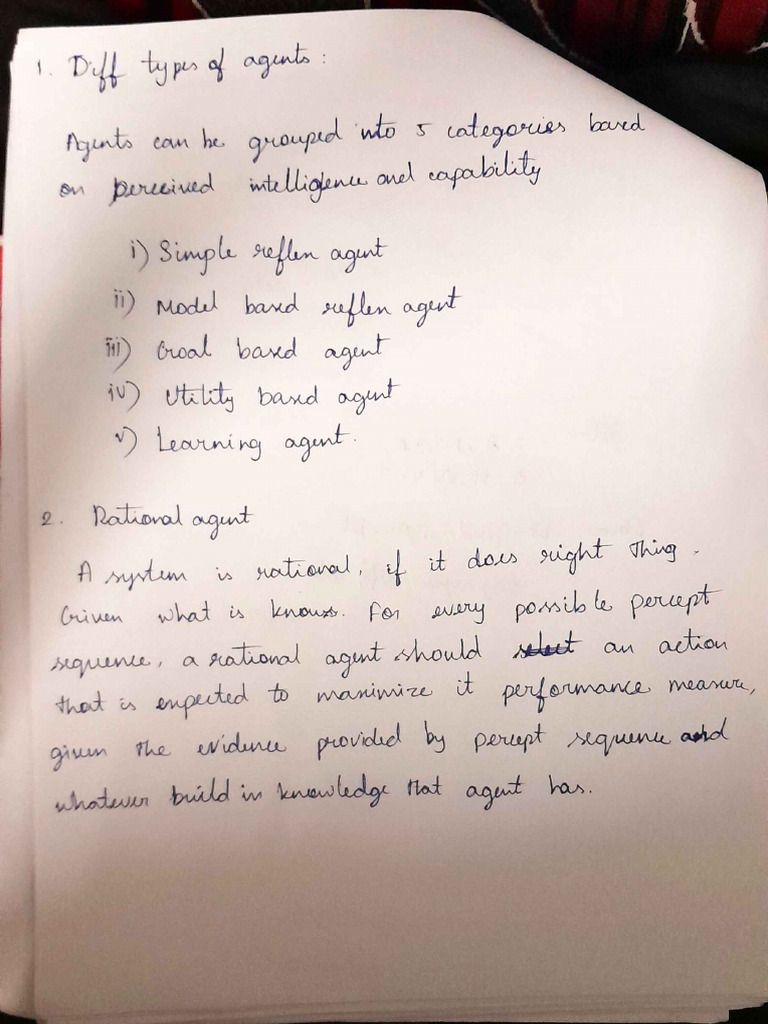 1. Diff types of agents :
Agents can be grouped into 5 categories based
on perceived intelligence and capability
i) Simple reflex agent
ii) Model based reflex agent
iii) Goal based agent
iv) Utility based agent
v) Learning agent.
2. Rational agent
A system is rational, if it does right thing.
Given what is knows. For every possible percept
sequence, a rational agent should select an action
that is expected to maximize it performance measure,
given the evidence provided by percept sequence and
whatever build in knowledge that agent has.